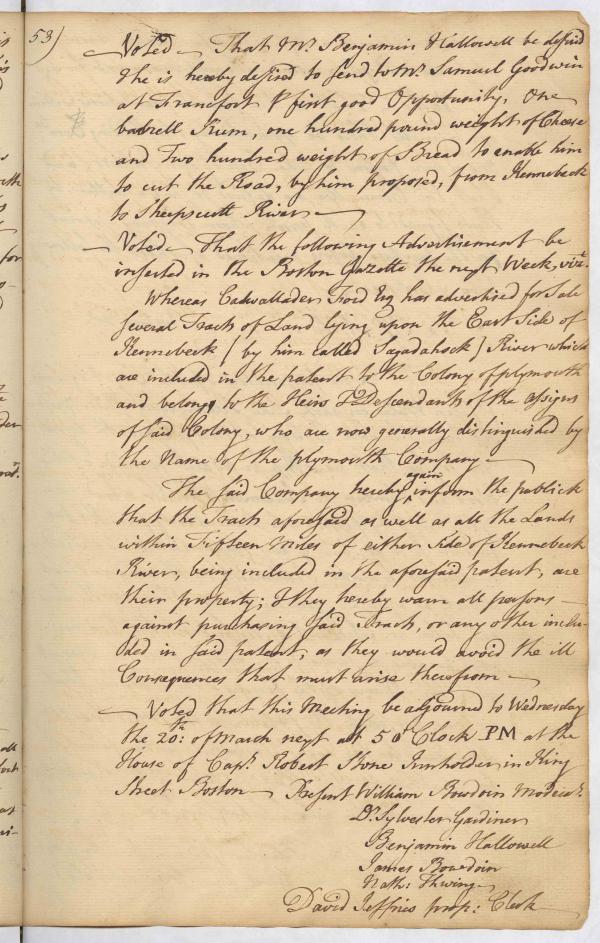 53)
Voted — That Mr. Benjamin Hallowell be desired
& he is hereby desired to send to Mr. Samuel Goodwin
at Francfort ⅌ first good Opportunity, One
barrell Rum, one hundred pound weight of Cheese
and Two hundred weight of Bread to enable him
to cut the Road, by him proposed, from Kennebeck
to Sheepscutt River —
— Voted — That the following Advertisement be
inserted in the Boston Gazette the next Week, vizt.
Whereas Cadwallader Ford Esq has advertised for Sale
several Tracts of Land lying upon the East Side of
Kennebeck / by him called Sagadahock / River which
are included in the patent to the Colony of plymouth
and belong to the Heirs & Descendants of the assigns
of said Colony, who are now generally distinguished by
the Name of the plymouth Company —
The said Company hereby again inform the publick
that the Tracts aforesaid as well as all the Lands
within Fifteen Miles of either side of Kennebeck
River, being included in the aforesaid patent, are
their property; & they hereby warn all persons —
against purchasing said Tracts, or any other inclu-
ded in said patent, as they would avoid the ill
Consequences that must arise therefrom —
— Voted that this Meeting be adjourned to Wednesday
the 20th: of March next at 5 o'Clock PM at the
House of Capt. Robert Stone Innholder in King
Street Boston — Present William Bowdoin Moderr.
Dr. Sylvester Gardiner
Benjamin Hallowell
James Bowdoin
Nath: Thwing
David Jeffries prop: Clerk